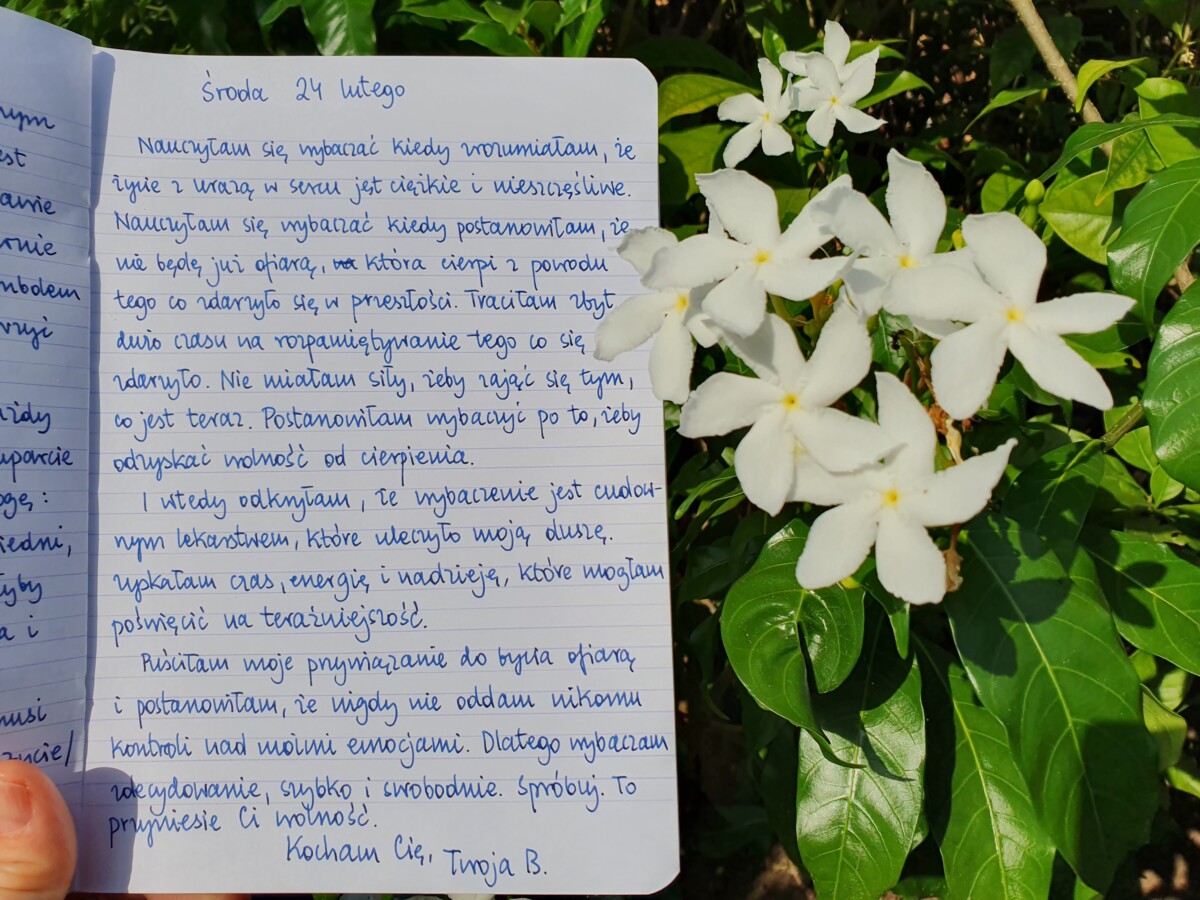 nym
est
anie
rnie
mbolem
rzyj
ażdy
uparcie
ogę:
iedni,
yby
a i
musi
życie/
Środa 24 lutego
Nauczyłam się wybaczać kiedy zrozumiałam, że
życie z urazą w sercu jest ciężkie i nieszczęśliwe.
Nauczyłam się wybaczać kiedy postanowiłam, że
nie będę już ofiarą, która cierpi z powodu
tego co zdarzyło się w przeszłości. Traciłam zbyt
dużo czasu na rozpamiętywanie tego co się
zdarzyło. Nie miałam siły, żeby zająć się tym,
co jest teraz. Postanowiłam wybaczyć po to, żeby
odzyskać wolność od cierpienia.
I wtedy odkryłam, że wybaczenie jest cudow-
nym lekarstwem, które uleczyło moją duszę.
zyskałam czas, energię i nadzieję, które mogłam
poświęcić na teraźniejszość.
Puściłam moje przywiązanie do bycia ofiarą
i postanowiłam, że nigdy nie oddam nikomu
kontroli nad moimi emocjami. Dlatego wybaczam
zdecydowanie, szybko i swobodnie. Spróbuj. To
przyniesie Ci wolność.
Kocham Cię, Twoja B.